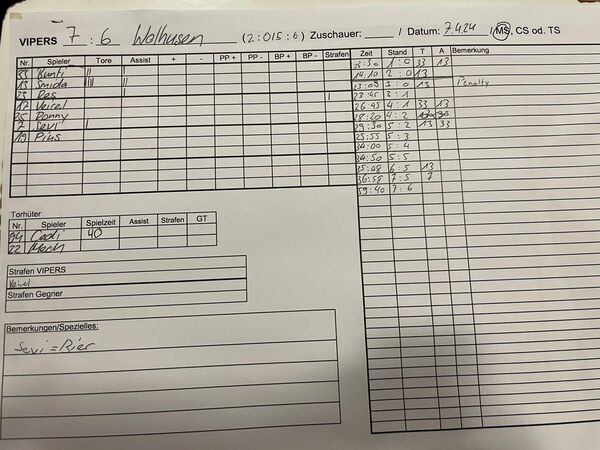 VIPERS 7 : 6 Wolhusen (2:0 / 5:6) Zuschauer: / Datum: 7.4.24 / MS, CS od. TS
Nr. Spieler Tore Assist + - PP + PP - BP + BP - Strafen
33 Bunti || |
13 Smida |||| ||
23 Res |
17 Veirel |
25 Donny
7 Sevi |
19 Prius
Zeit Stand T A Bemerkung
1 : 0 33 13
14:10 2 : 0 13
23:05 3 : 0 13 Penalty
23:45 3 : 1
26:45 4 : 1 33 13
28:20 4 : 2
29:30 5 : 2 13 33
25:55 5 : 3
34:00 5 : 4
34:50 5 : 5
35:08 6 : 5 13
36:58 7 : 5 7
59:40 7 : 6
Torhüter
Nr. Spieler Spielzeit Assist Strafen GT
94 Cedi 40
22 Mech
Strafen VIPERS
Veirel
Strafen Gegner
Bemerkungen/Spezielles:
Sevi = Rier